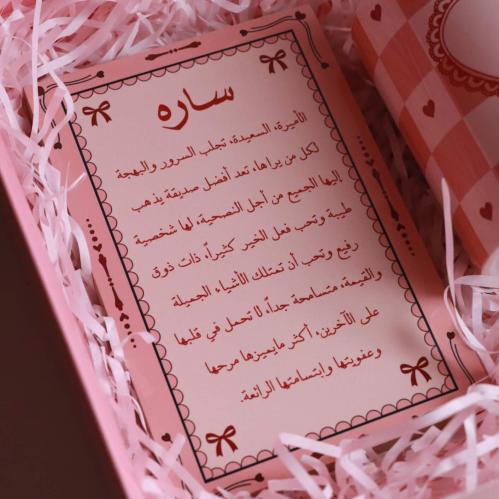 ساره
الأميرة، السعيدة، تجلب السرور والبهجة
لكل من يراها، تعد أفضل صديقة يذهب
إليها الجميع من أجل النصحية، لها شخصية
طيبة وتحب فعل الخير كثيراً، ذات ذوق
رفيع وتحب أن تمتلك الأشياء الجميلة
والقيمة، متسامحة جداً، لا تحمل في قلبها
على الآخرين، أكثر مايميزها مرحها
وعفويتها وابتسامتها الرائعة.